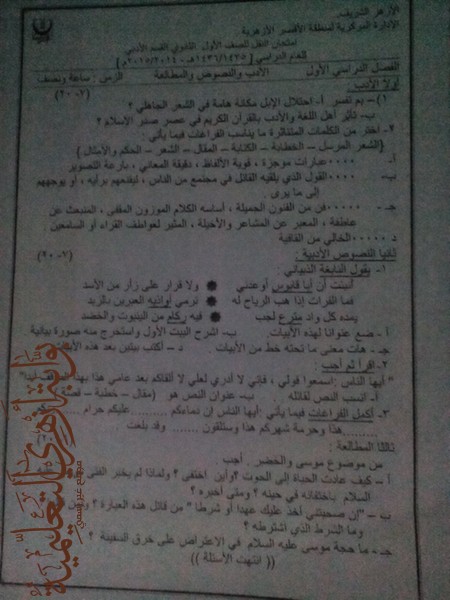 الأزهر الشريف
الإدارة المركزية لمنطقة الأقصر الأزهرية
امتحان النقل للصف الأول الثانوي القسم الأدبي
للعام الدراسي [ ١٤٣٥/ ١٤٣٦هـ - ٢٠١٤/ ٢٠١٥م ]
الفصل الدراسي الأول الأدب والنصوص والمطالعة الزمن : ساعة ونصف
أولا الأدب : (٧-٢٠)
١- بم تفسر أ- احتلال الإبل مكانة هامة في الشعر الجاهلي ؟
ب- تأثر أهل اللغة والأدب بالقرآن الكريم في عصر صدر الإسلام ؟
٢- اختر من الكلمات المتناثرة ما يناسب الفراغات فيما يأتي :
(الشعر المرسل – الخطابة – الكتابة – المقال – الشعر – الحكم والأمثال )
أ- ....عبارات موجزة ، قوية الألفاظ ، دقيقة المعاني ، بارعة التصوير
ب- .....القول الذي يلقيه القائل في مجتمع من الناس ، ليقنعهم برأيه ، أو يوجههم
إلى ما يرى .
جـ - .....فن من الفنون الجميلة ، أساسه الكلام الموزون المقفى ، المنبعث عن
عاطفة ، المعبر عن المشاعر والأخيلة ، المثير لعواطف القراء أو السامعين
د .....الخالي من القافية
ثانيا النصوص الأدبية : (٧-٢٠)
١- يقول النابغة الذبياني
أنبئت أن أبا قابوس أوعدني ولا قرار على زأر من الأسد
فما الفرات إذا هب الرياح له ترمي أواذيه العبرين بالزبد
يمده كل واد مترع لجب فيه ركام من الينبوت والخضد
أ - ضع عنوانا لهذه الأبيات . ب- اشرح البيت الأول واستخرج منه صورة بيانية
جـ - هات معنى ما تحته خط من الأبيات د – أكتب بيتين بعد هذه
٢- اقرأ ثم أجب :
" أيها الناس : اسمعوا قولي ، فإني لا أدري لعلي لا ألقاكم بعد عامي هذا بهذا
أ- انسب النص لقائله . ب- عنوان النص هو (مقال – خطبة –
٣- أكمل الفراغات فيما يأتي "أيها الناس إن دماءكم ........عليكم حرام
........هذا وحرمة شهركم هذا وستلقون ..... وقد بلغت
ثالثا المطالعة :
من موضوع موسى والخضر . أجب
أ – كيف عادت الحياة إلى الحوت ؟ وأين اختفى ؟ ولماذا لم يخبر الفتى
السلام باختفائه في حينه ؟ ومتى أخبره ؟
ب – "إن صحبتني آخذ عليك عهدا أو شرطا " من قائل هذه العبارة ؟
وما الشرط الذي اشترطه ؟
جـ - ما حجة موسى عليه السلام في الاعتراض على خرق السفينة ؟
(( انتهت الأسئلة ))